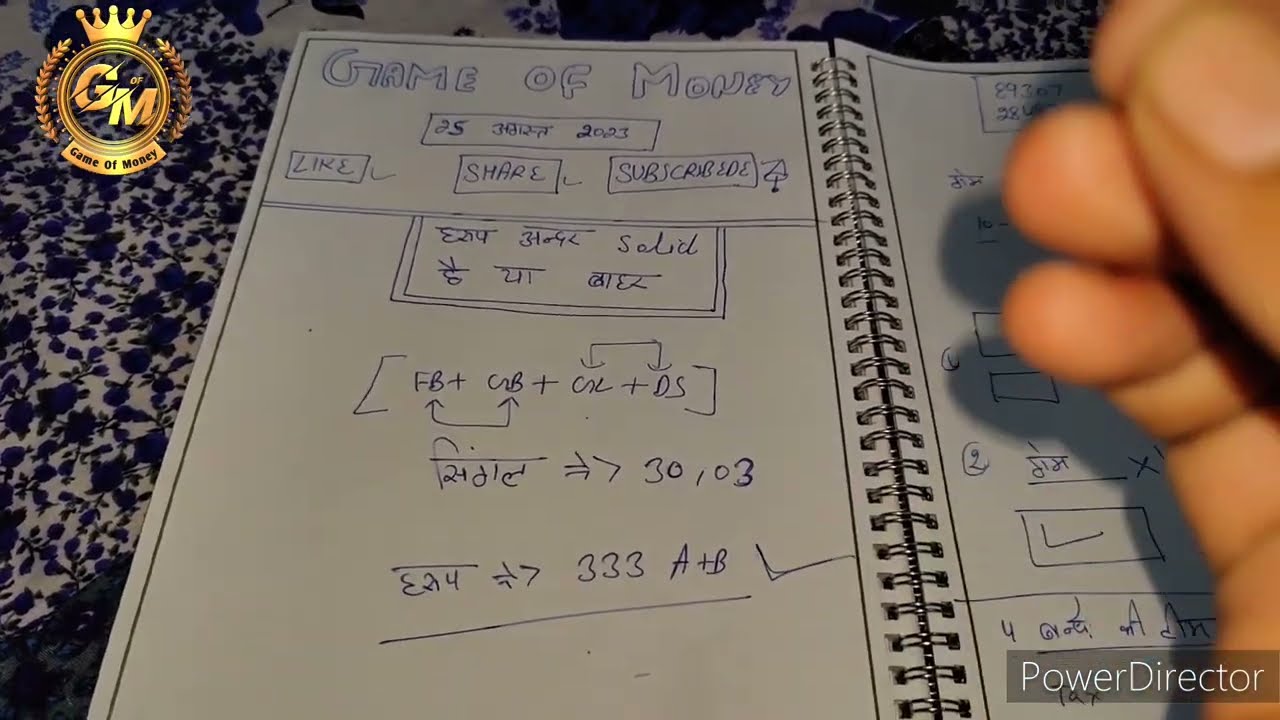 GM
OF
Game Of Money
GAME OF MONEY
25 अगस्त 2023
LIKE SHARE SUBSCRIBEDE
हरुप अन्दर Solid
है या बाहर
[FB+ GB + GL + DS]
सिंगल => 30,03
हरुप => 333 A+B
89307
गेम
10-
1
2 गेम X
PowerDirector